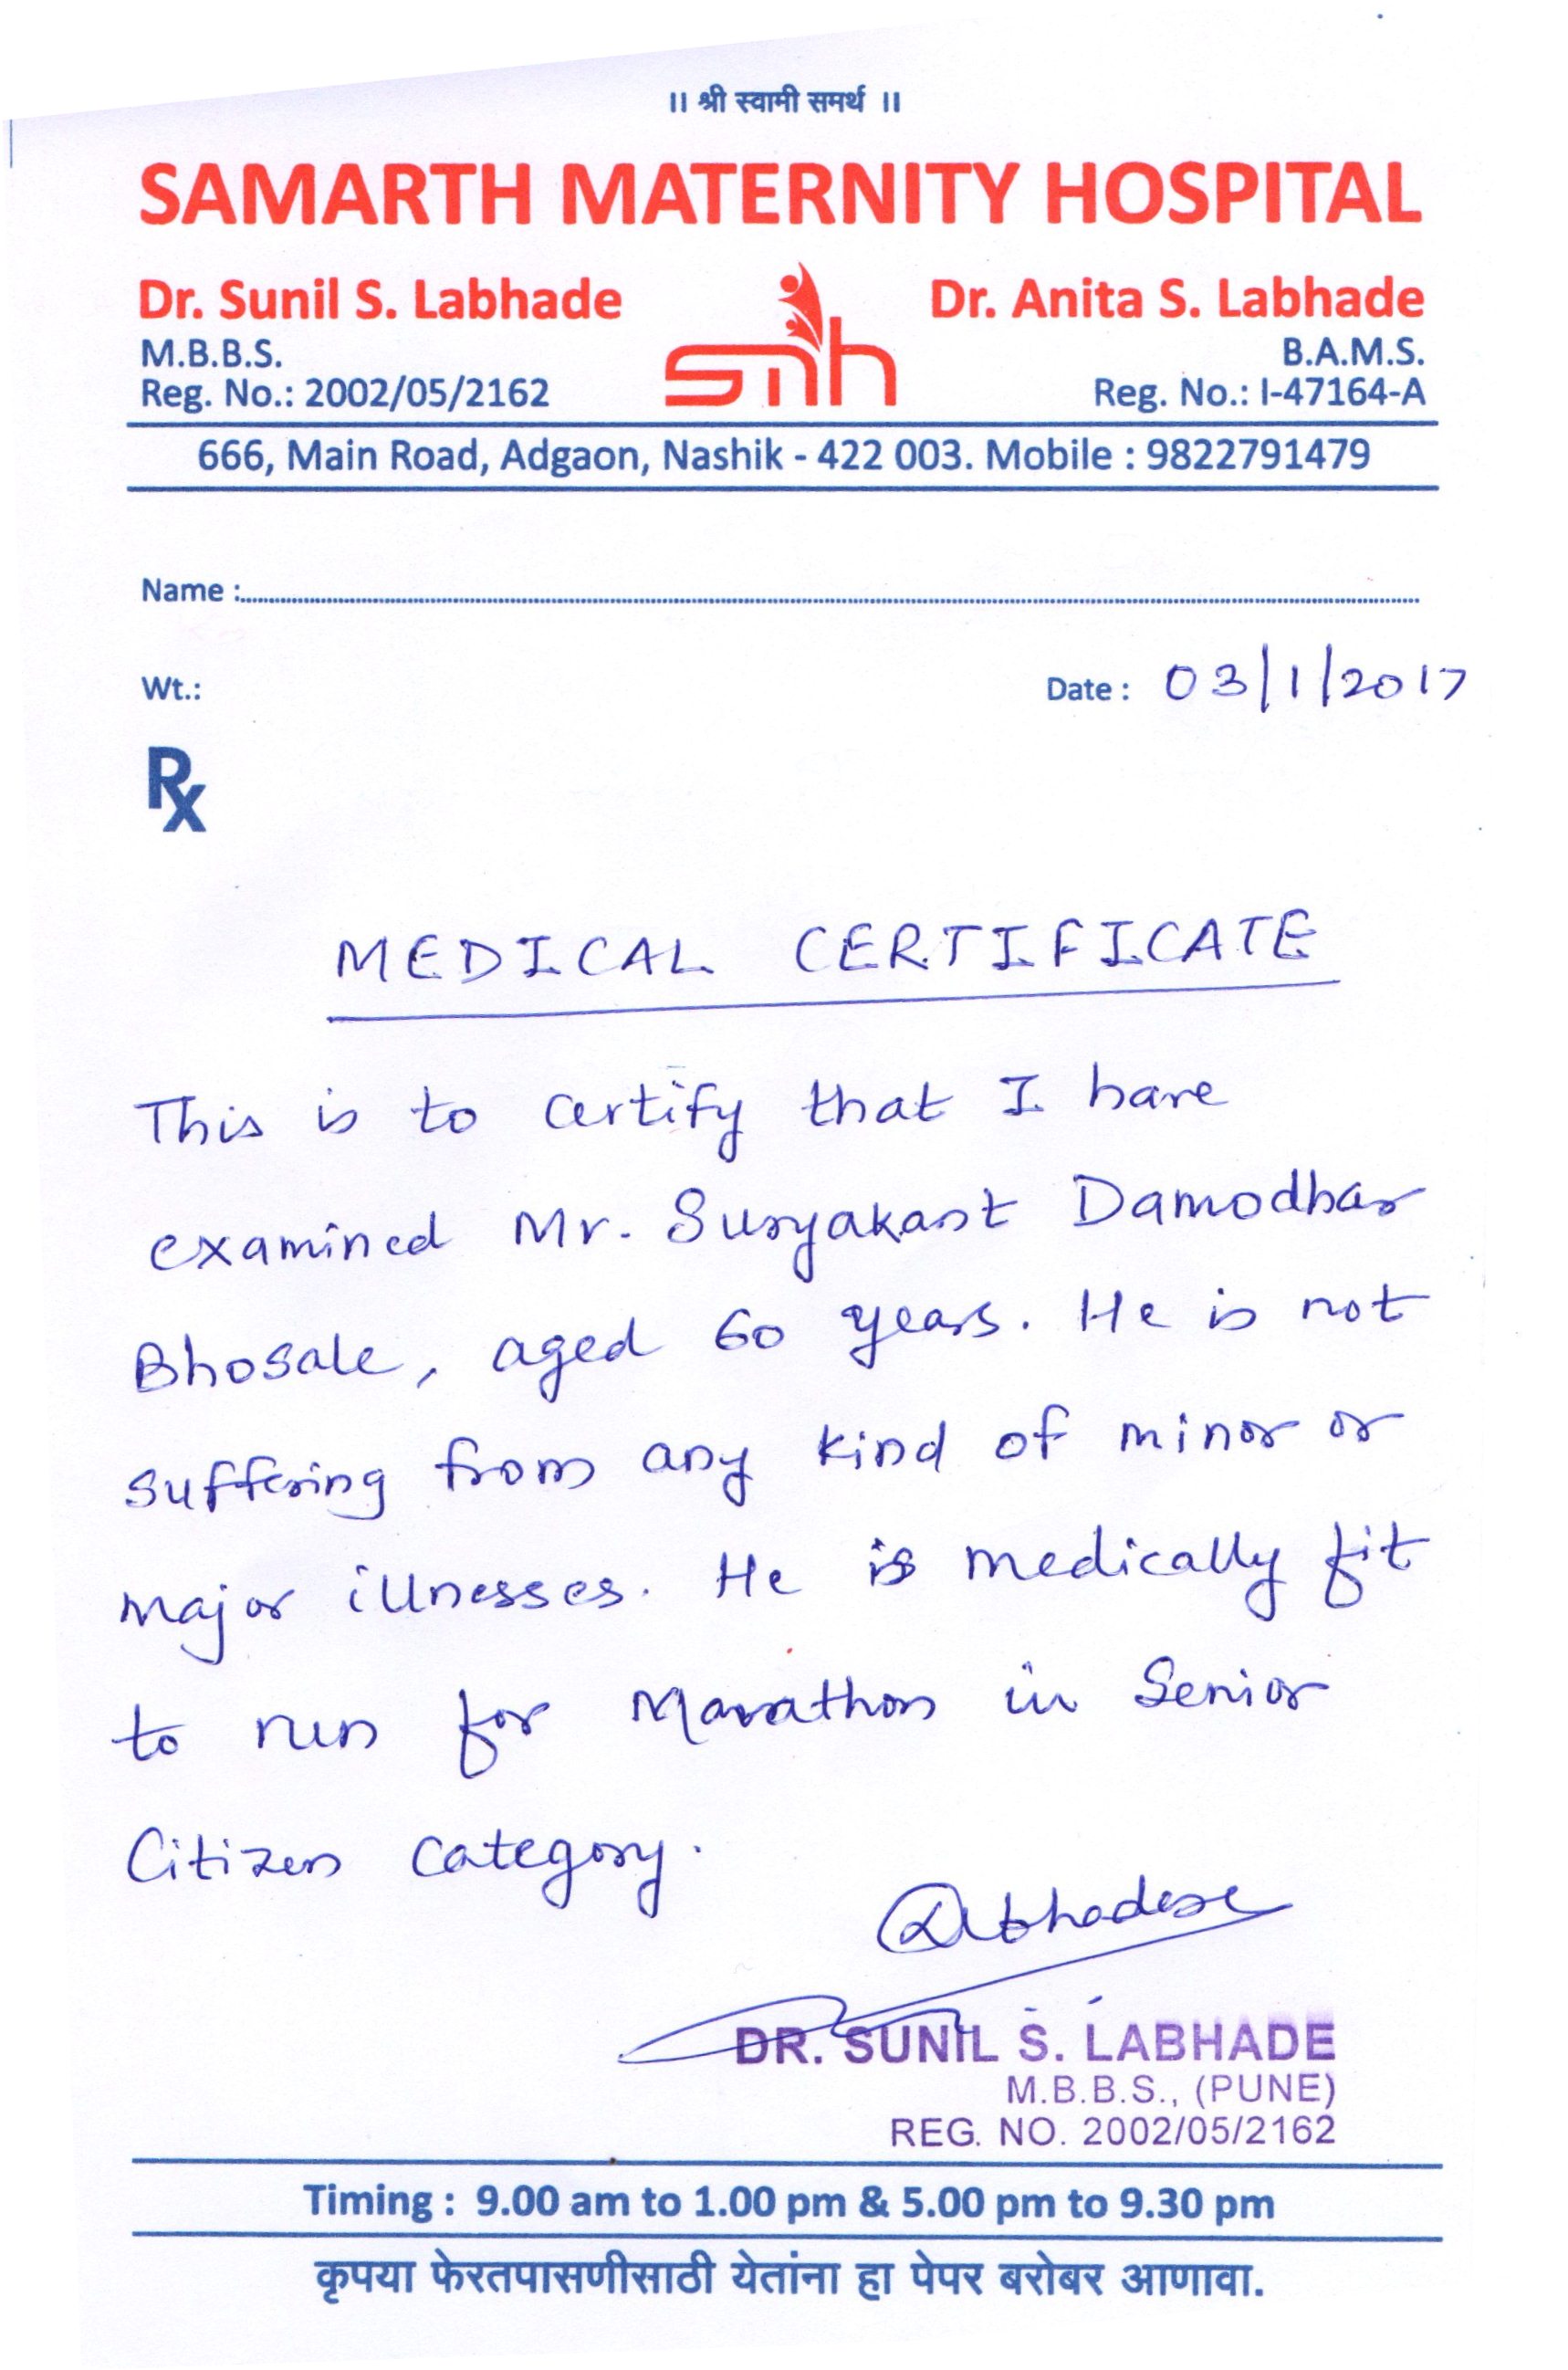 ॥ श्री स्वामी समर्थ ॥
SAMARTH MATERNITY HOSPITAL
Dr. Sunil S. Labhade
M.B.B.S.
Reg. No.: 2002/05/2162
smh
Dr. Anita S. Labhade
B.A.M.S.
Reg. No.: I-47164-A
666, Main Road, Adgaon, Nashik - 422 003. Mobile : 9822791479
Name :
Wt.:
Date : 03/1/2017
Rx
MEDICAL CERTIFICATE
This is to certify that I have
examined Mr. Suryakant Damodhar
Bhosale, aged 60 years. He is not
suffering from any kind of minor or
major illnesses. He is medically fit
to run for Marathon in Senior
Citizen category.
DR. SUNIL S. LABHADE
M.B.B.S., (PUNE)
REG. NO. 2002/05/2162
Timing : 9.00 am to 1.00 pm & 5.00 pm to 9.30 pm
कृपया फेरतपासणीसाठी येतांना हा पेपर बरोबर आणावा.